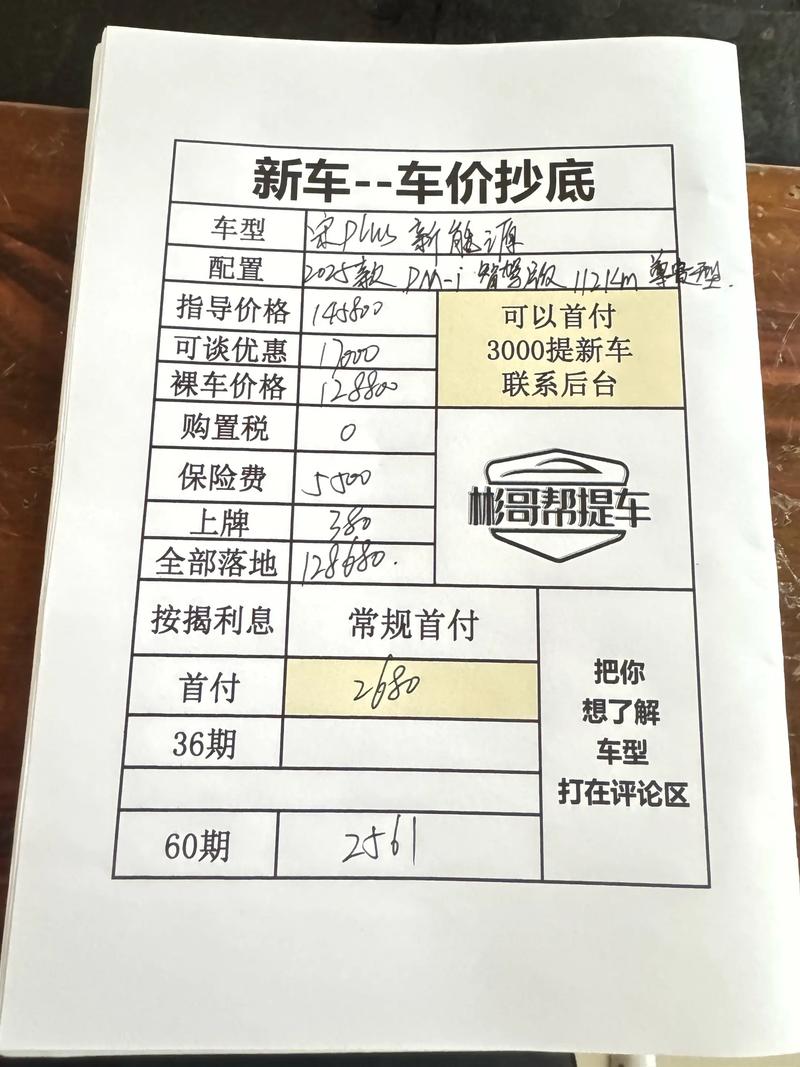 新车--车价抄底
车型 宋Plus 新能源
配置 2025款 DM-i 智驾版 112Km 尊贵型.
指导价格 145800
可谈优惠 17000
裸车价格 128800
可以首付
3000提新车
联系后台
购置税 0
保险费 5500
上牌 380
全部落地 128680.
彬哥帮提车
按揭利息 常规首付
首付 2680
36期
60期 2561
把你
想了解
车型
打在评论区